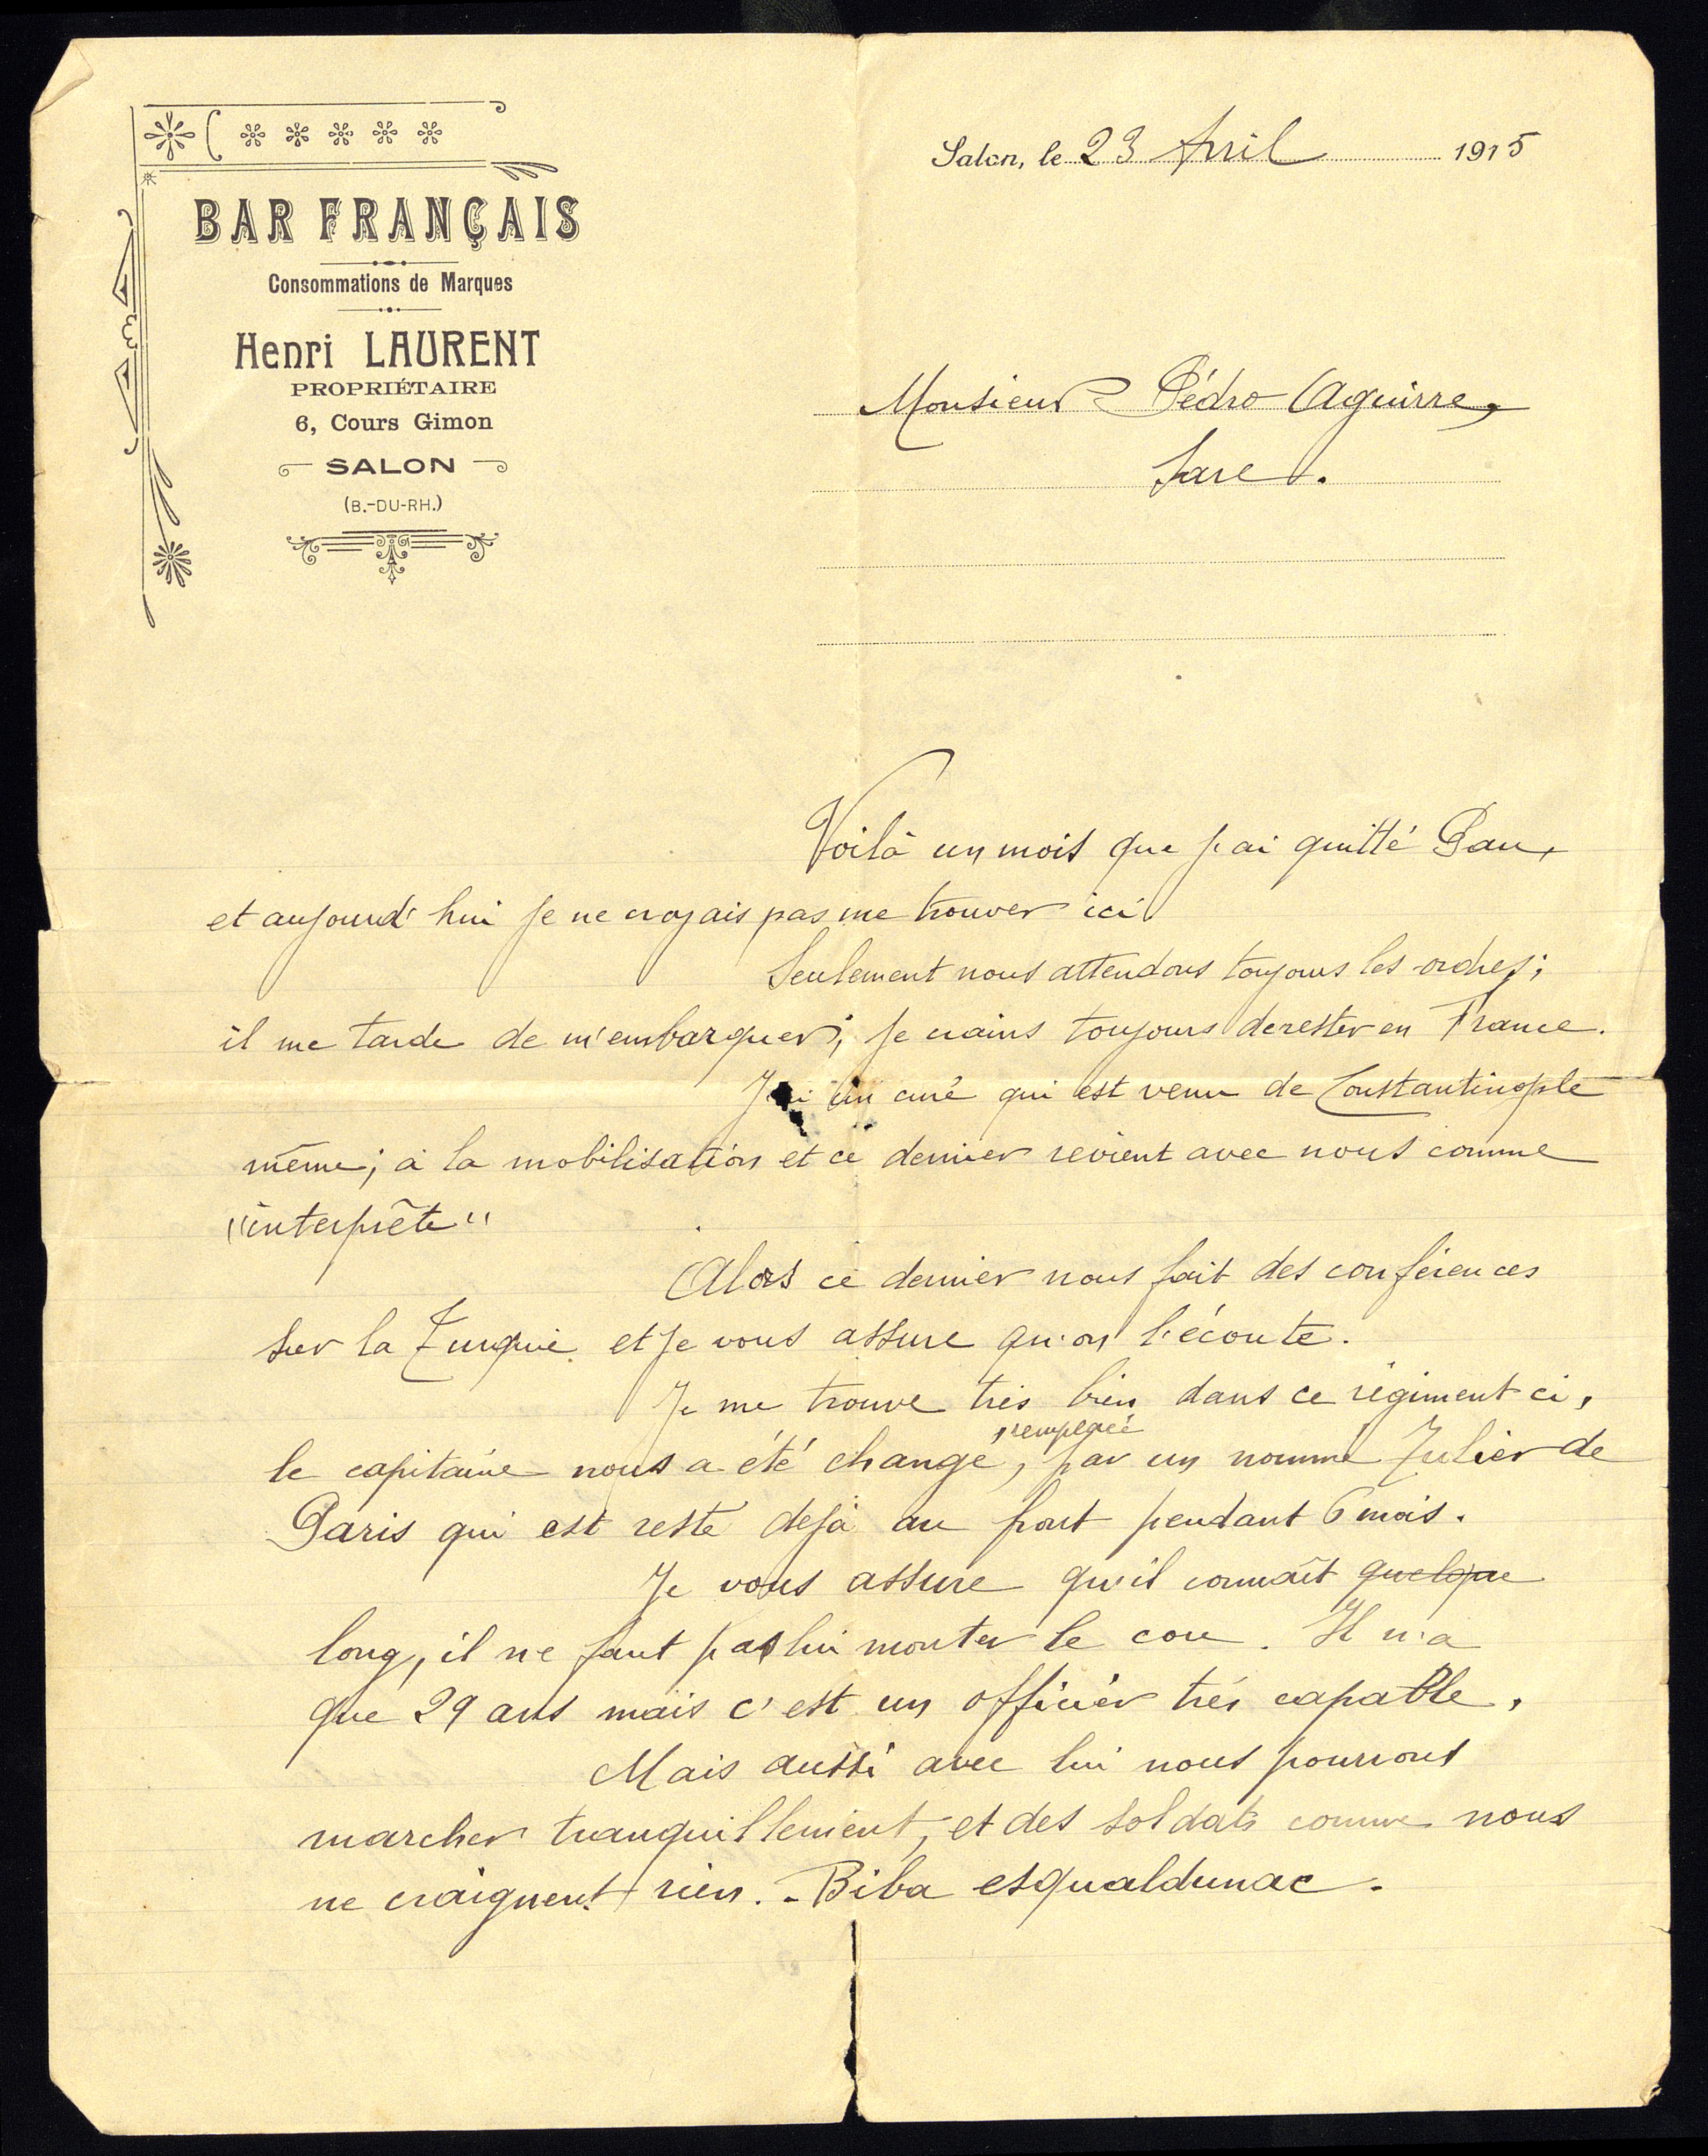 BAR FRANÇAIS
Consommations de Marques
Henri LAURENT
PROPRIÉTAIRE
6, Cours Gimon
SALON
(B.-DU-RH.)
Salon, le 23 Avril 1915
Monsieur Pédro Aguirre,
Sare.
Voilà un mois que j'ai quitté Pau,
et aujourd'hui je ne croyais pas me trouver ici
Seulement nous attendons toujours les ordres;
il me tarde de m'embarquer; je crains toujours de rester en France.
un curé qui est venu de Constantinople
même; à la mobilisation et ce dernier revient avec nous comme
"interprète"
Alors ce dernier nous fait des conférences
sur la Turquie et je vous assure qu'on l'écoute.
Je me trouve très bien dans ce régiment ci,
le capitaine nous a été changé, remplacé par un nommé Julier de
Paris qui est resté déjà au front pendant 6 mois.
Je vous assure qu'il connaît quelque
long, il ne faut pas lui monter le cou. Il n'a
que 29 ans mais c'est un officier très capable,
Mais aussi avec lui nous pourrons
marcher tranquillement, et des soldats comme nous
ne craignent rien. - Biba esqualdunac.